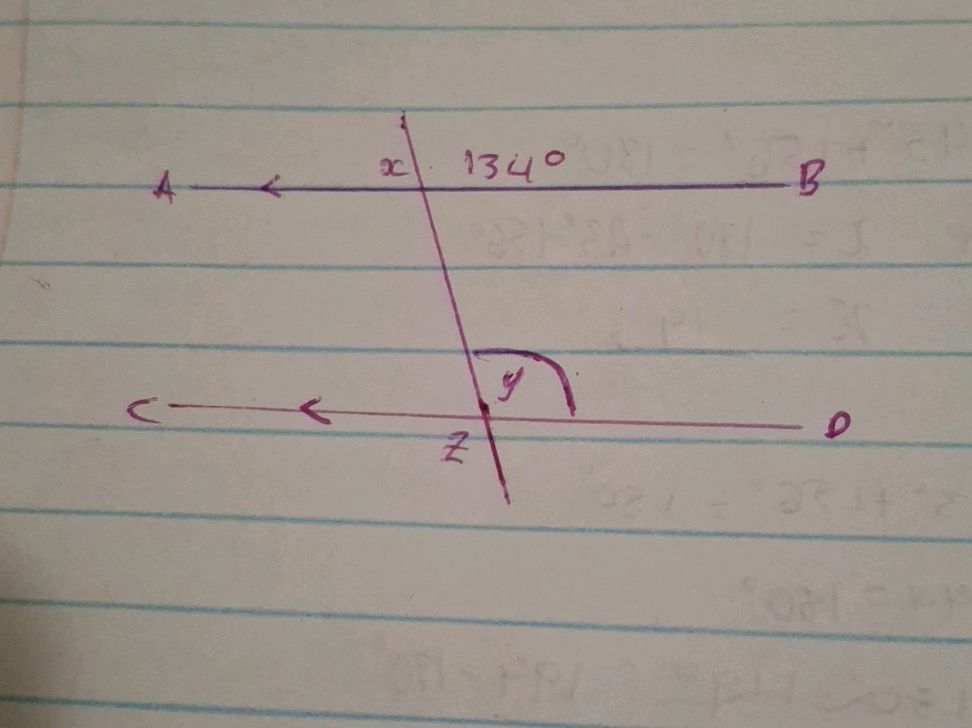 x 134°
A B
y
C D
z